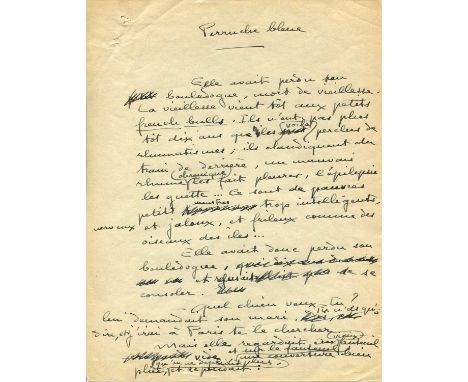 Perruche bleue
Elle avait perdu son
bouledogue, mort de vieillesse.
La vieillesse vient tôt aux petits
french-bulls. Ils n'ont pas plus
tôt dix ans que les voilà perclus de
rhumatismes ; ils
train de derrière, un mauvais
rhume chronique les fait pleurer, l'épilepsie
les guette... Ce sont de pauvres
petits monstres trop intelligents,
nerveux et jaloux, et frileux comme des
oiseaux des îles...
Elle avait donc perdu son
bouledogue,
et se
consoler.
- Quel chien veux-tu ?
lui demandait son mari. Tu n'as qu'à
dire, et j'irai à Paris te le chercher.
Mais elle regardait, un fauteuil
vide et
une couverture bien
pliée, et répondait :